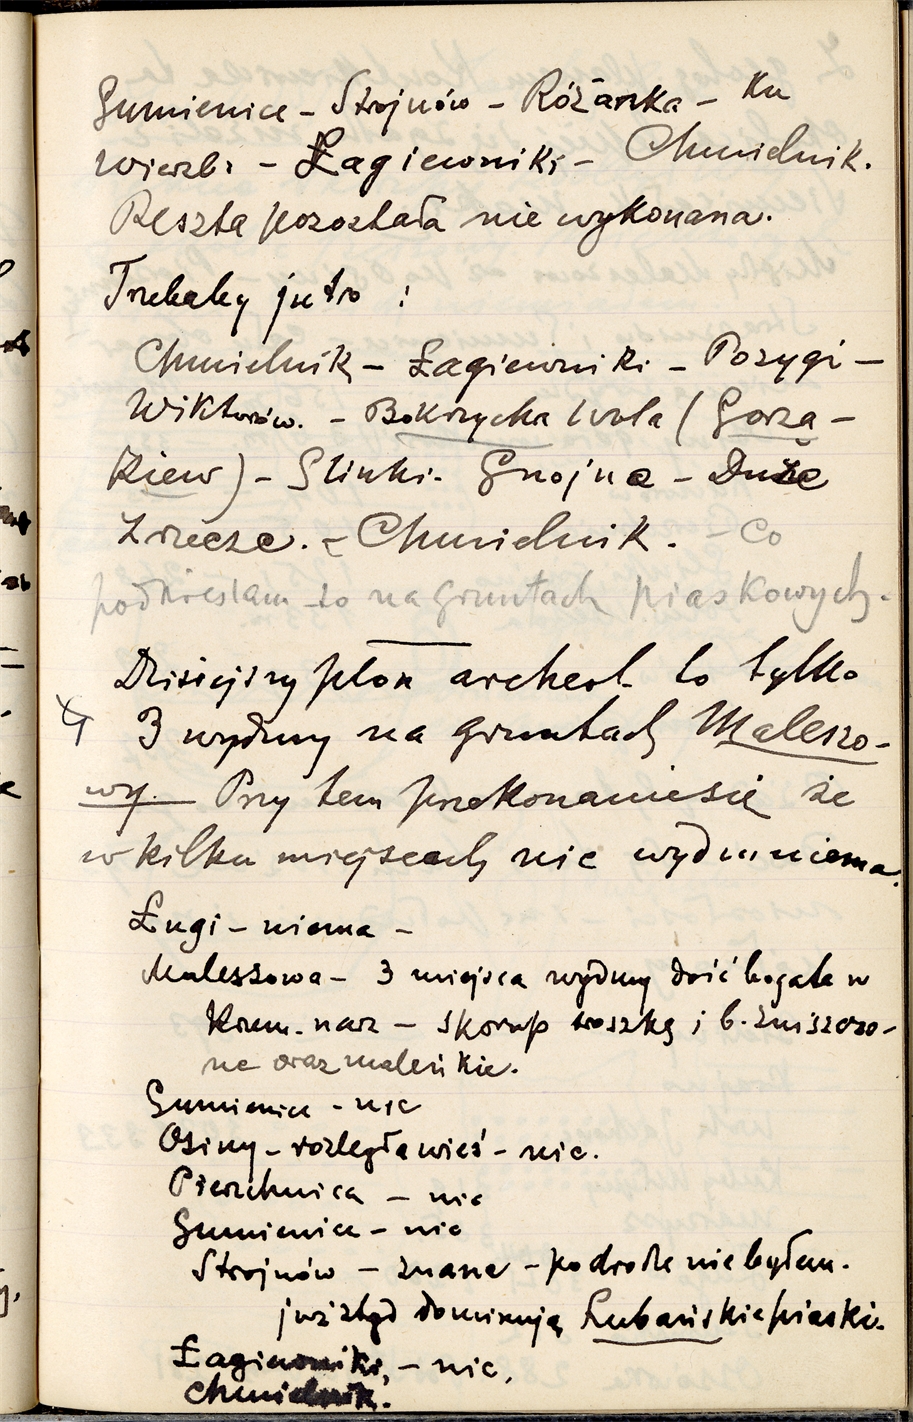 Gumienice – Strojnów – Różanka – Ku
wierzbi – Łagiewniki – Chmielnik.
Reszta pozostała nie wykonana.
Trzebaby jutro :
Chmielnik – Łagiewniki – Pożygi –
Wiktorów. – Bokrzycka Wola (Gorza –
Kiew) – Glinki. Gnojna – Duże
Zrecze. – Chmielnik. – Co
podkreślam to na gruntach piaskowych.
Dzisiejszy plon archeol. to tylko
3 wydmy na gruntach Maleszo-
wy. Przy tem przekonanie się że
w kilku miejscach nic wydm niema.
Ługi – niema –
Maleszowa – 3 miejsca wydmy dość bogate w
Krzem. narz – skorup troszkę i b. zniszczo-
ne oraz maleńkie.
Gumienice – nic
Osiny – rozległa wieś – nic.
Pierzchnica – nic
Gumienice – nic
Strojnów – znane – po drodze nie byłem.
już stąd dominują Lubańskie piaski.
Łagiewniki, – nic,
Chmielnik.